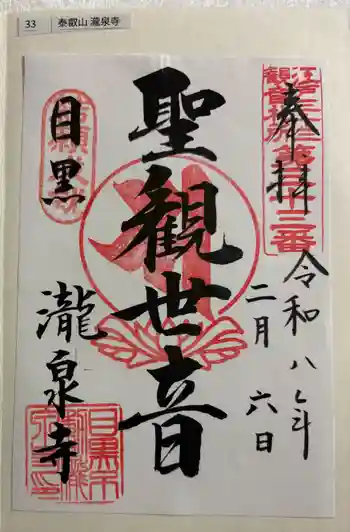 33 泰叡山 瀧泉寺
江戸三十三
観音札所第三十三番
奉拝
令和八年
二月六日
聖観世音
目黒
瀧泉寺